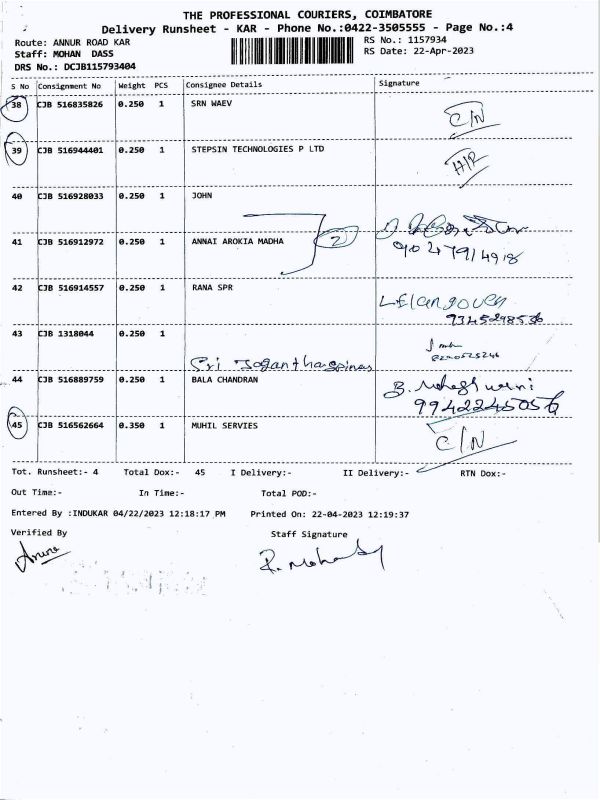 THE PROFESSIONAL COURIERS, COIMBATORE
Delivery Runsheet - KAR - Phone No.:0422-3505555 - Page No.:4
Route: ANNUR ROAD KAR
RS No.: 1157934
Staff: MOHAN DASS
RS Date: 22-Apr-2023
DRS No.: DCJB115793404
S No Consignment No Weight PCS Consignee Details Signature
38 CJB 516835826 0.250 1 SRN WAEV C/N
39 CJB 516944401 0.250 1 STEPSIN TECHNOLOGIES P LTD
40 CJB 516928033 0.250 1 JOHN
41 CJB 516912972 0.250 1 ANNAI AROKIA MADHA 2
42 CJB 516914557 0.250 1 RANA SPR
43 CJB 1318044 0.250 1
Sri
44 CJB 516889759 0.250 1 BALA CHANDRAN
9942245056
45 CJB 516562664 0.350 1 MUHIL SERVIES C/N
Tot. Runsheet:- 4 Total Dox:- 45 I Delivery:- II Delivery:- RTN Dox:-
Out Time:- In Time:- Total POD:-
Entered By :INDUKAR 04/22/2023 12:18:17 PM Printed On: 22-04-2023 12:19:37
Verified By Staff Signature